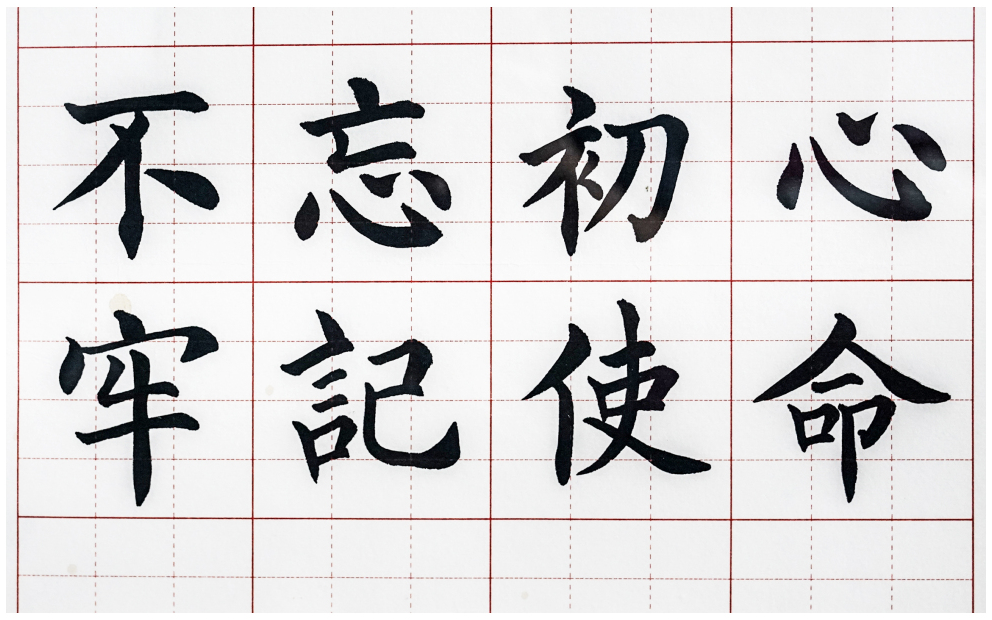 不忘初心
牢記使命